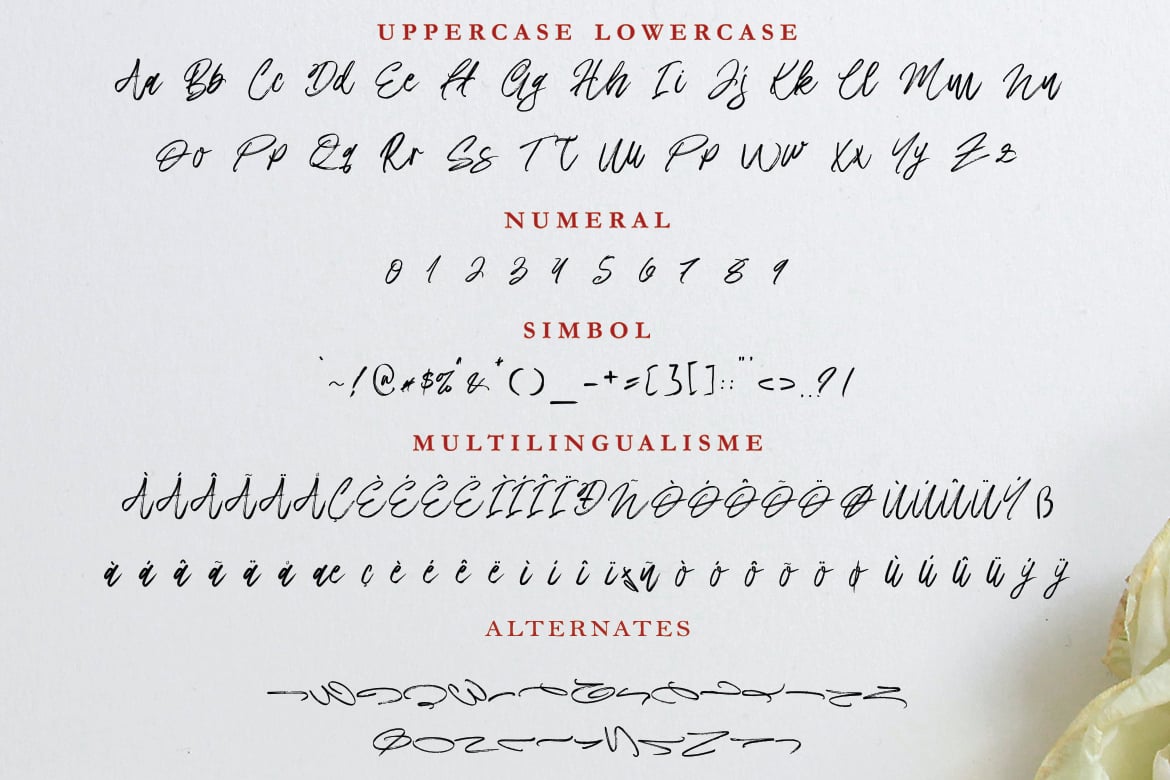 UPPERCASE LOWERCASE
Aa Bb Cc Dd Ee Ff Gg Hh Ii Jj Kk Ll Mm Nn
Oo Pp Qq Rr Ss Tt Uu Pp Ww Xx Yy Zz
NUMERAL
0 1 2 3 4 5 6 7 8 9
SIMBOL
`~!@#$%^&*()_-+={}[]::"'<>..?/
MULTILINGUALISME
ÀÁÂÃÄÅÇÈÉÊËÌÍÎÏÐÑÒÓÔÕÖØÙÚÛÜÝß
à á â ã ä å æ ç è é ê ë ì í î ï ñ ò ó ô õ ö ø ù ú û ü ý ÿ
ALTERNATES